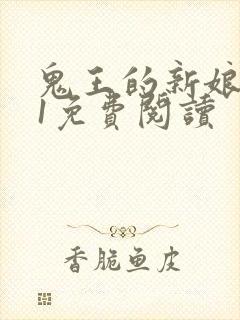 鬼王的新娘
1免費閱讀
香脆鱼皮